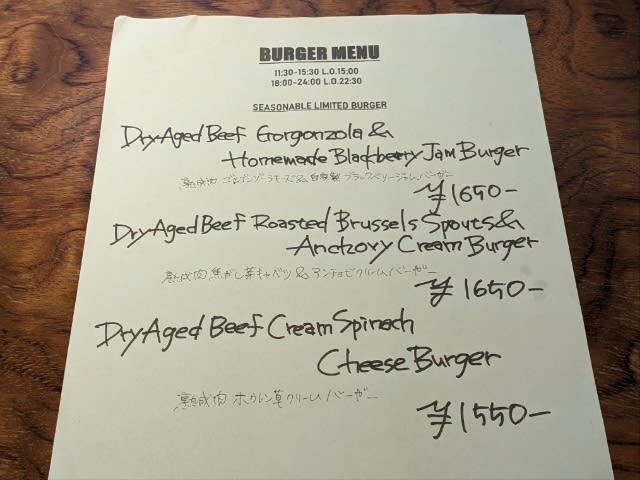 BURGER MENU
11:30-15:30 L.O.15:00
18:00-24:00 L.O.22:30
SEASONABLE LIMITED BURGER
Dry Aged Beef Gorgonzola &
Homemade Blackberry Jam Burger
熟成肉 ゴルゴンゾーラチーズ& 自家製 ブラックベリージャムバーガー
¥1650-
Dry Aged Beef Roasted Brussels Spouts &
Anchovy Cream Burger
熟成肉 焦がし芽キャベツ & アンチョビクリームバーガー
¥1650-
Dry Aged Beef Cream Spinach
Cheese Burger
熟成肉 ホウレン草クリームバーガー
¥1550-